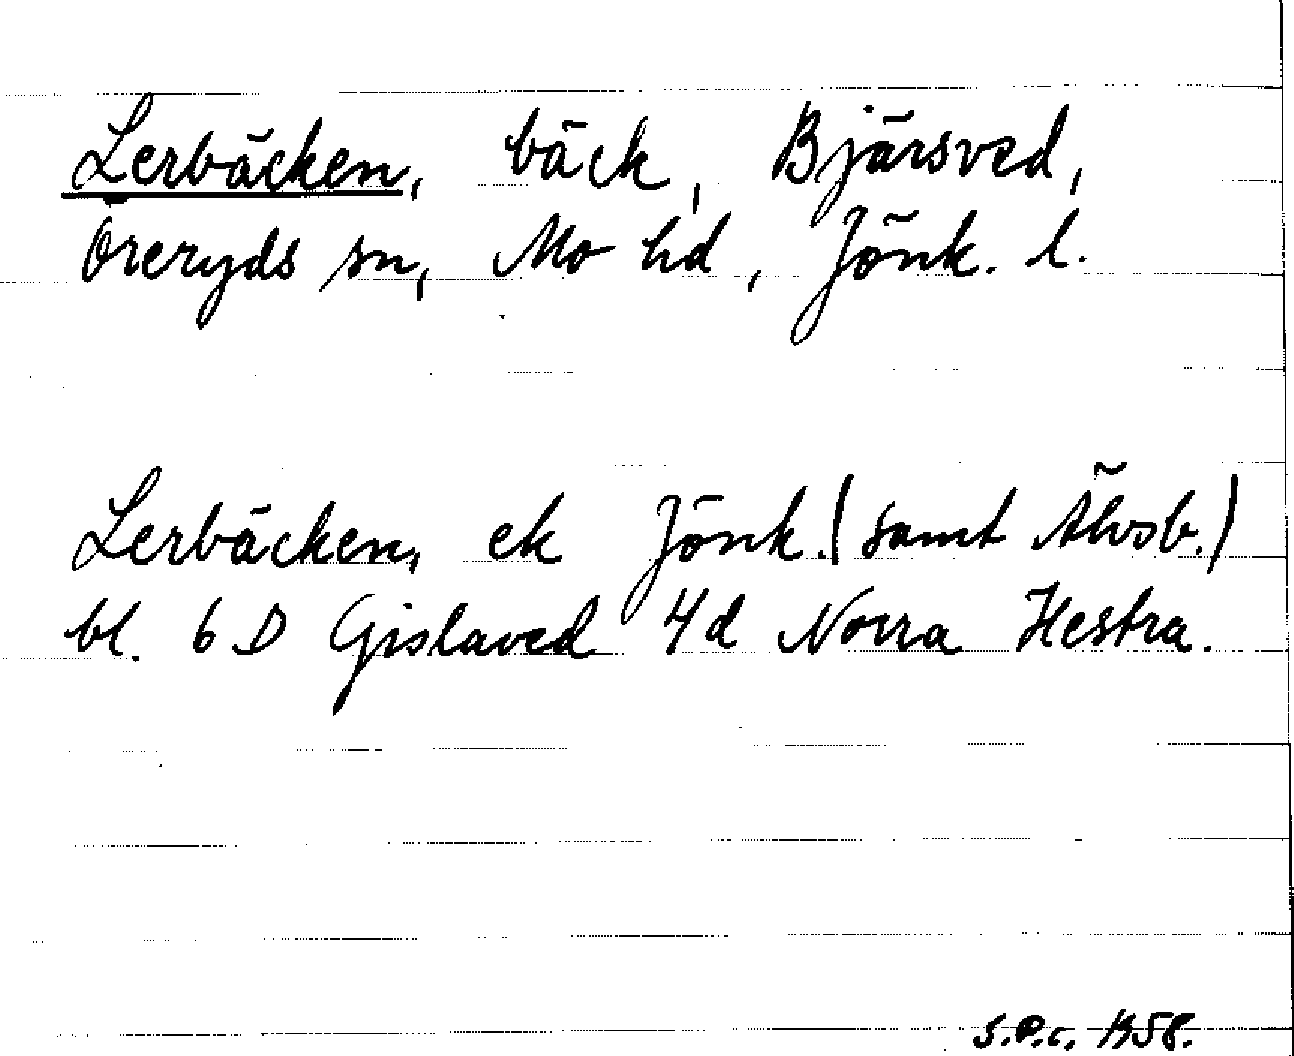 Lerbäcken, bäck, Bjärsved,
Öreryds sn, Mo hd, Jönk. l.
Lerbäcken, ek Jönk. (samt Älvsb.)
bl. 6 D Gislaved 4d Norra Hestra.
S.P.c. 1958.